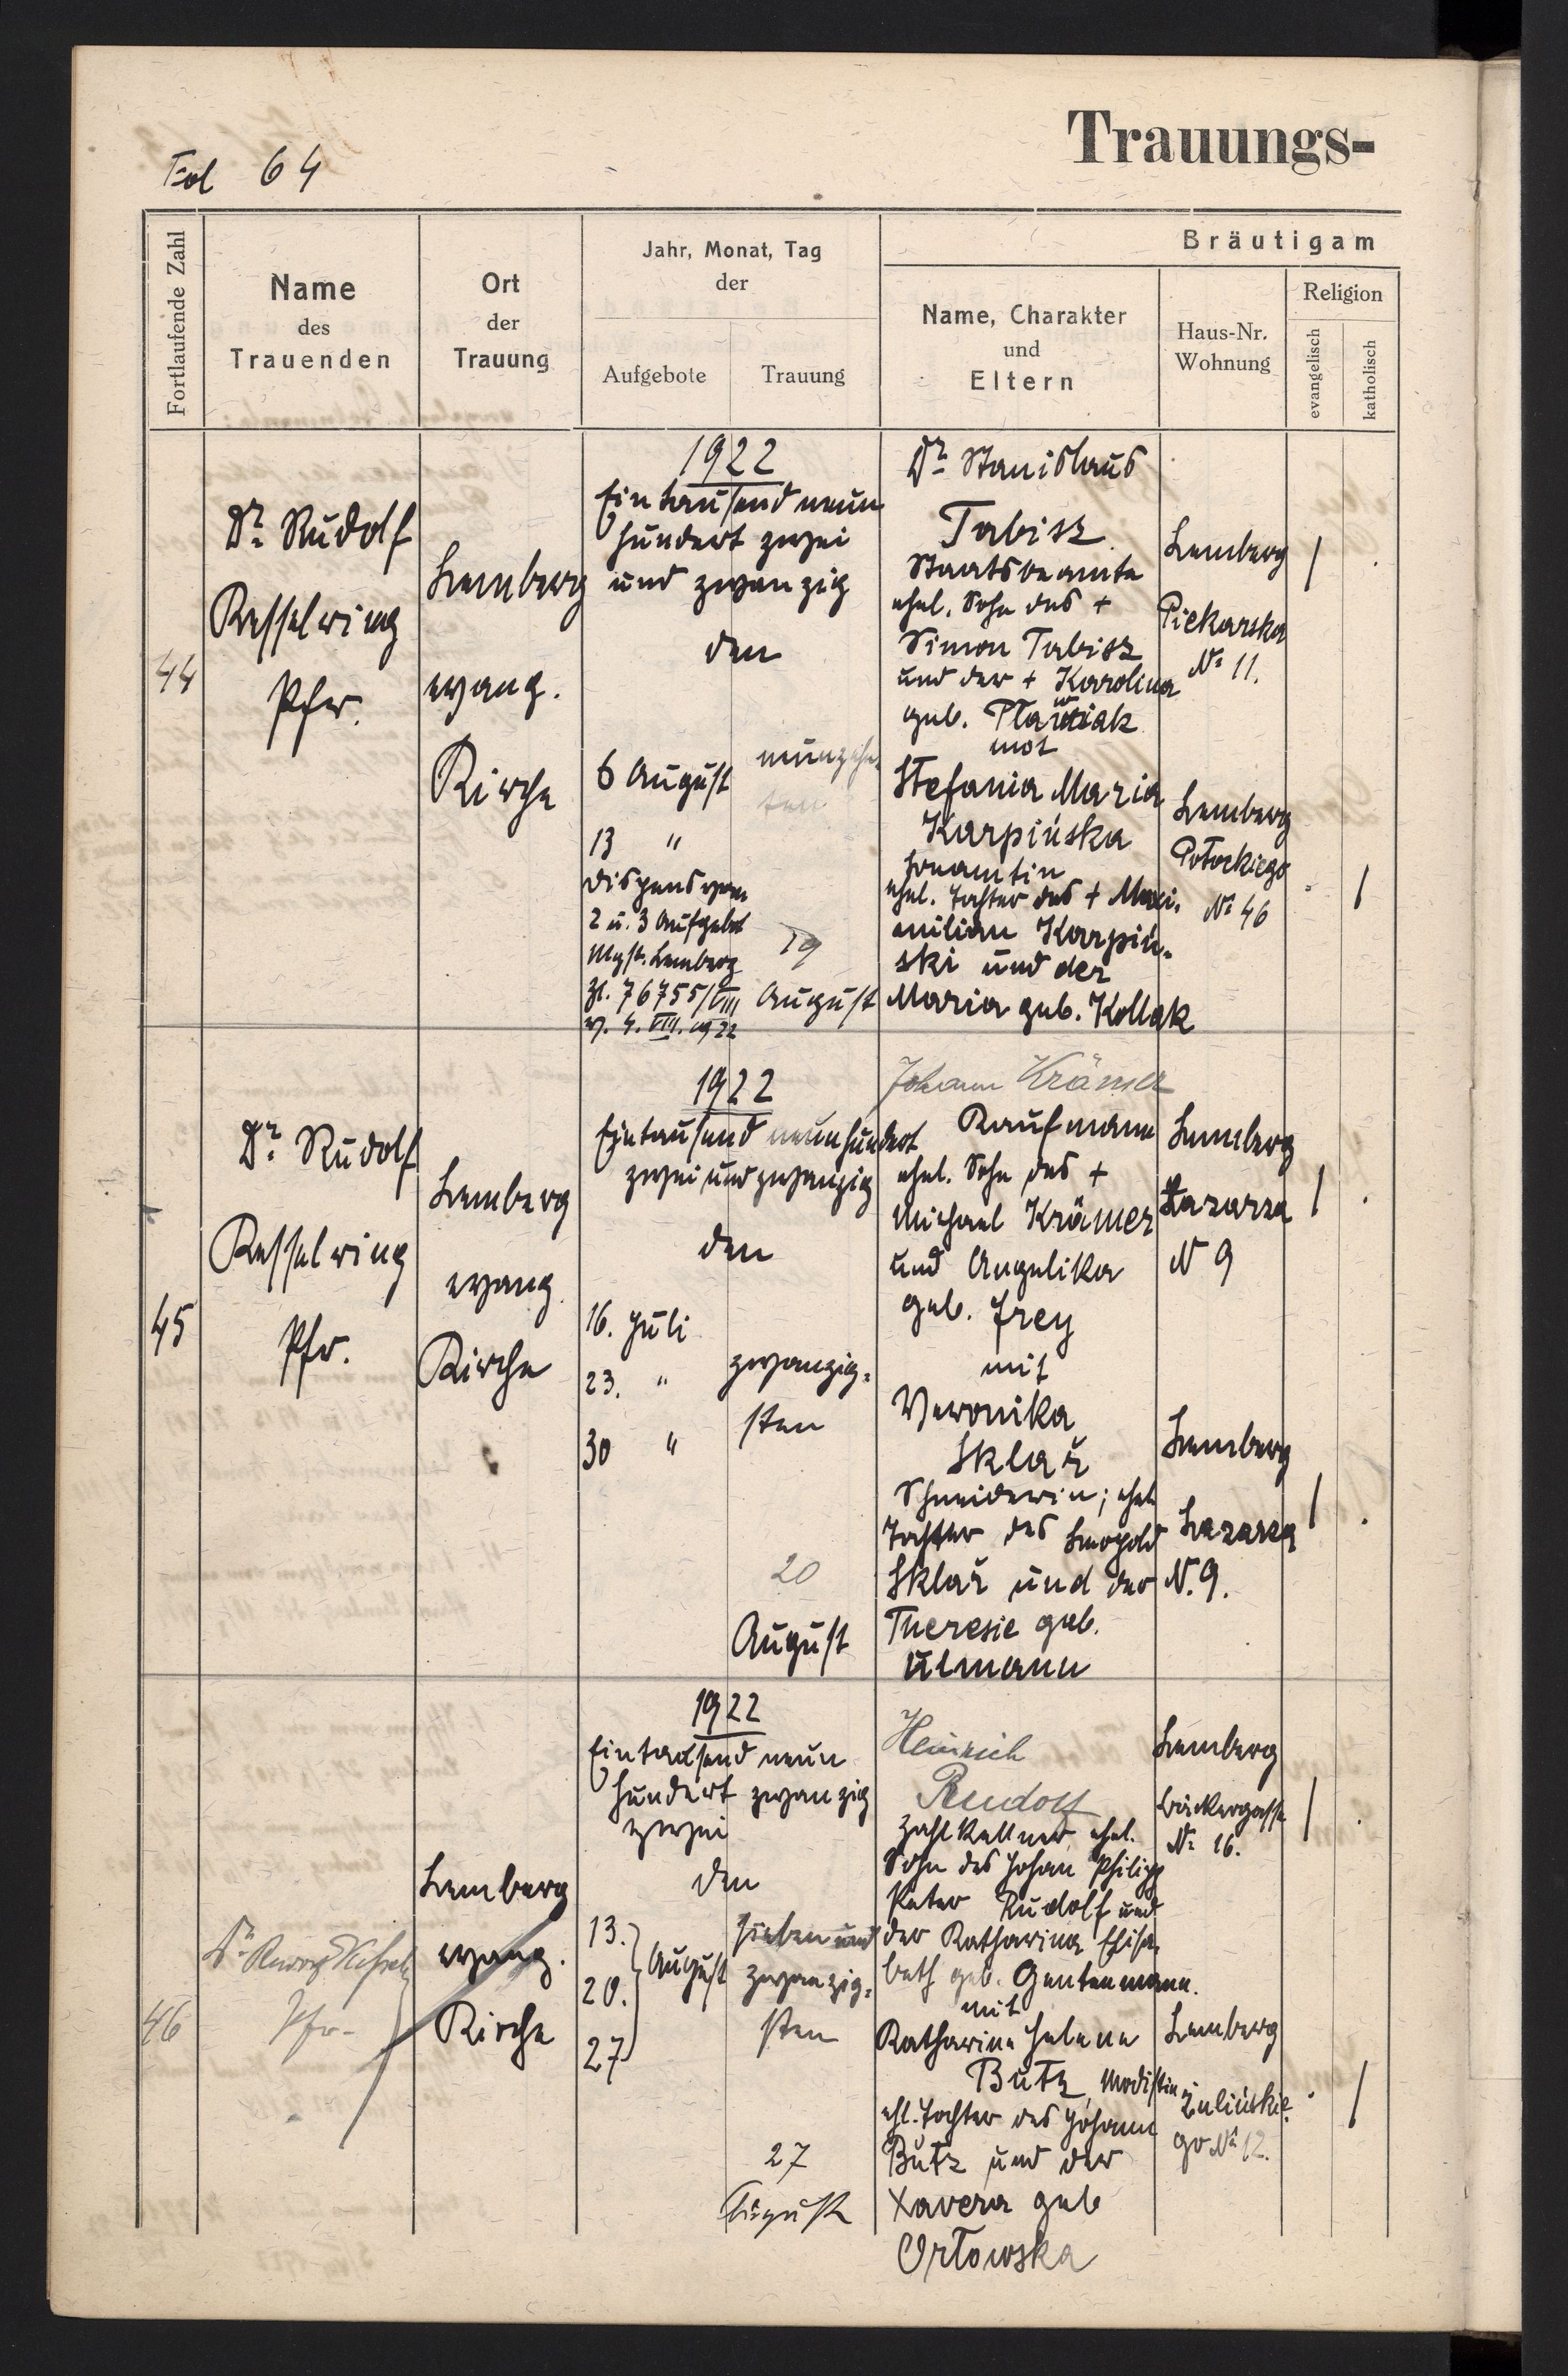 Trauungs-
Fol 64
Fortlaufende Zahl
Name
des
Trauenden
Ort
der
Trauung
Jahr, Monat, Tag
der
Aufgebote
Trauung
Bräutigam
Name, Charakter
und
Eltern
Haus-Nr.
Wohnung
Religion
evangelisch
katholisch
44
Dr. Rudolf
Kesselring
Pfr.
Lemberg
evang.
Kirche
1922
Eintausend neun
hundert zwei
und zwanzig
den
6 August
13 "
Dispens vom
2 u. 3 Aufgebot
Mgstr. Lemberg
Zl. 76755/VIII
v. 4. VIII. 1922
neunzehn
ten
19
August
Dr. Stanislaus
Tabisz
Staatsbeamte
ehel. Sohn des +
Simon Tabisz
und der + Karolina
geb.
mit
Stefania Maria
Karpińska
Beamtin
ehel. Tochter des + Maxi-
milian Karpiń-
ski und der
Maria geb. Kollak
Lemberg
Piekarska
No 11.
Lemberg
Potockiego
No 46
45
Dr. Rudolf
Kesselring
Pfr.
Lemberg
evang.
Kirche
1922
Eintausend neunhundert
zwei und zwanzig
den
16. Juli
23. "
30 "
zwanzig-
sten
20
August
Johann Krämer
Kaufmann
ehel. Sohn des +
Michael Krämer
und Angelika
geb. Frey
mit
Veronika
Sklař
Schneiderin; ehel.
Tochter des Leopold
Sklař und der
Theresie geb.
Ulmann
Lemberg
Łazarza
N 9
Lemberg
Łazarza
N. 9.
46
Dr.
Pfr.
Lemberg
evang.
Kirche
1922
Eintausend neun
hundert zwanzig
zwei
den
13.
20. August
27
sieben und
zwanzig-
sten
27
August
Heinrich
Rudolf
Zahlkellner, ehel.
Sohn des Johan Philipp
Peter Rudolf und
der Katharina Elisa-
beth geb. Gentenmann.
mit
Katharina Helene
Butz, Modistin
ehl. Tochter des Johann
Butz und der
Xavera geb
Orłowska
Lemberg
Bäckergasse
No 16.
Lemberg
Żulińskie-
go No 12.